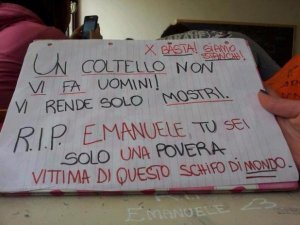 X BASTA! SIAMO
STANCHI!
UN COLTELLO NON
VI FA UOMINI!
VI RENDE SOLO MOSTRI.
R.I.P. EMANUELE, TU SEI
SOLO UNA POVERA
VITTIMA DI QUESTO SCHIFO DI MONDO.
EMANUELE